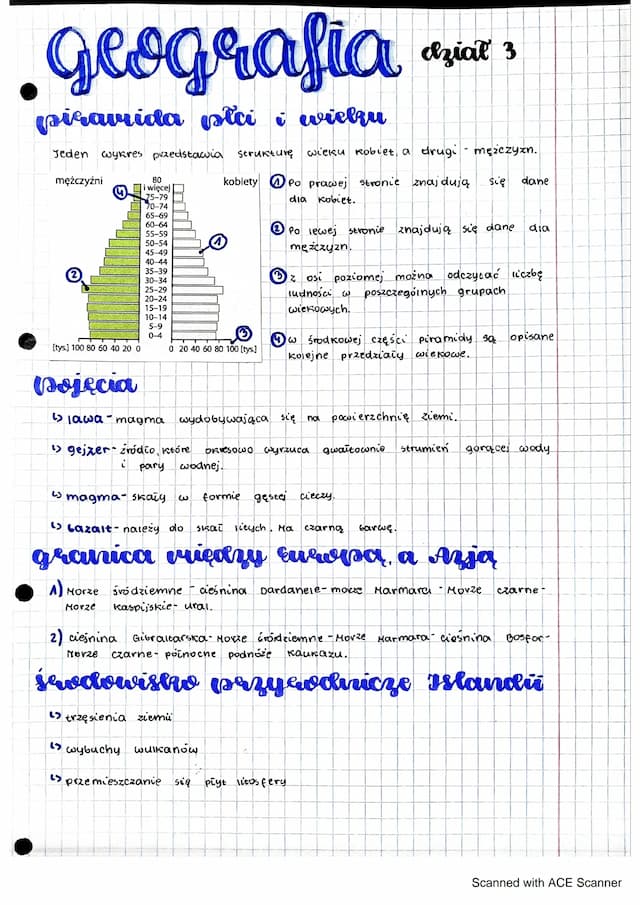 geografia dział 3
piramida płci i wieku
Jeden wykres przedstawia strukturę wieku kobiet, a drugi - mężczyzn.
mężczyźni 80 i więcej kobiety
75–79
70–74
65–69
60–64
55–59
50–54
45–49
40–44
35–39
30–34
25–29
20–24
15–19
10–14
5–9
0–4
[tys.] 100 80 60 40 20 0 0 20 40 60 80 100 [tys.]
4
1
2
3
1 Po prawej stronie znajdują się dane
dla kobiet.
2 Po lewej stronie znajdują się dane dla
mężczyzn.
3 z osi poziomej można odczytać liczbę
ludności w poszczególnych grupach
wiekowych.
4 w środkowej części piramidy są opisane
kolejne przedziały wiekowe.
pojęcia
↳ lawa - magma wydobywająca się na powierzchnię ziemi.
↳ gejzer - źródło, które okresowo wyrzuca gwałtownie strumień gorącej wody
i pary wodnej.
↳ magma - skały w formie gęstej cieczy.
↳ bazalt - należy do skał litych. Ma czarną barwę.
granica między Europą, a Azją
1) Morze śródziemne - cieśnina Dardanele - morze Marmara - Morze czarne -
Morze kaspijskie - ural.
2) cieśnina Gibraltarska - Morze śródziemne - Morze Marmara - cieśnina Bosfor -
Morze czarne - północne podnóże kaukazu.
środowisko przyrodnicze Islandii
↳ trzęsienia ziemi
↳ wybuchy wulkanów
↳ przemieszczanie się płyt litosfery
Scanned with ACE Scanner